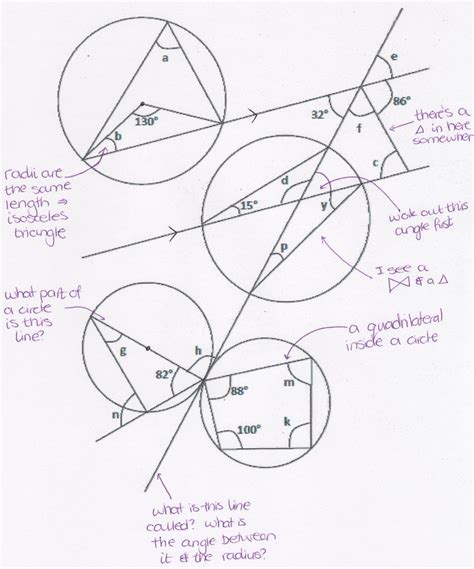 a
130°
b
radii are
the same
length ⇒
isosceles
triangle
e
32°
86°
f
there's a
Δ in here
somewher
c
d
15°
y
work out this
angle first
p
I see a
⋈ & a Δ
what part of
a circle
is this
line?
g
h
82°
n
a quadrilateral
inside a circle
88°
m
100°
k
what is this line
called? what is
the angle between
it & the radius?